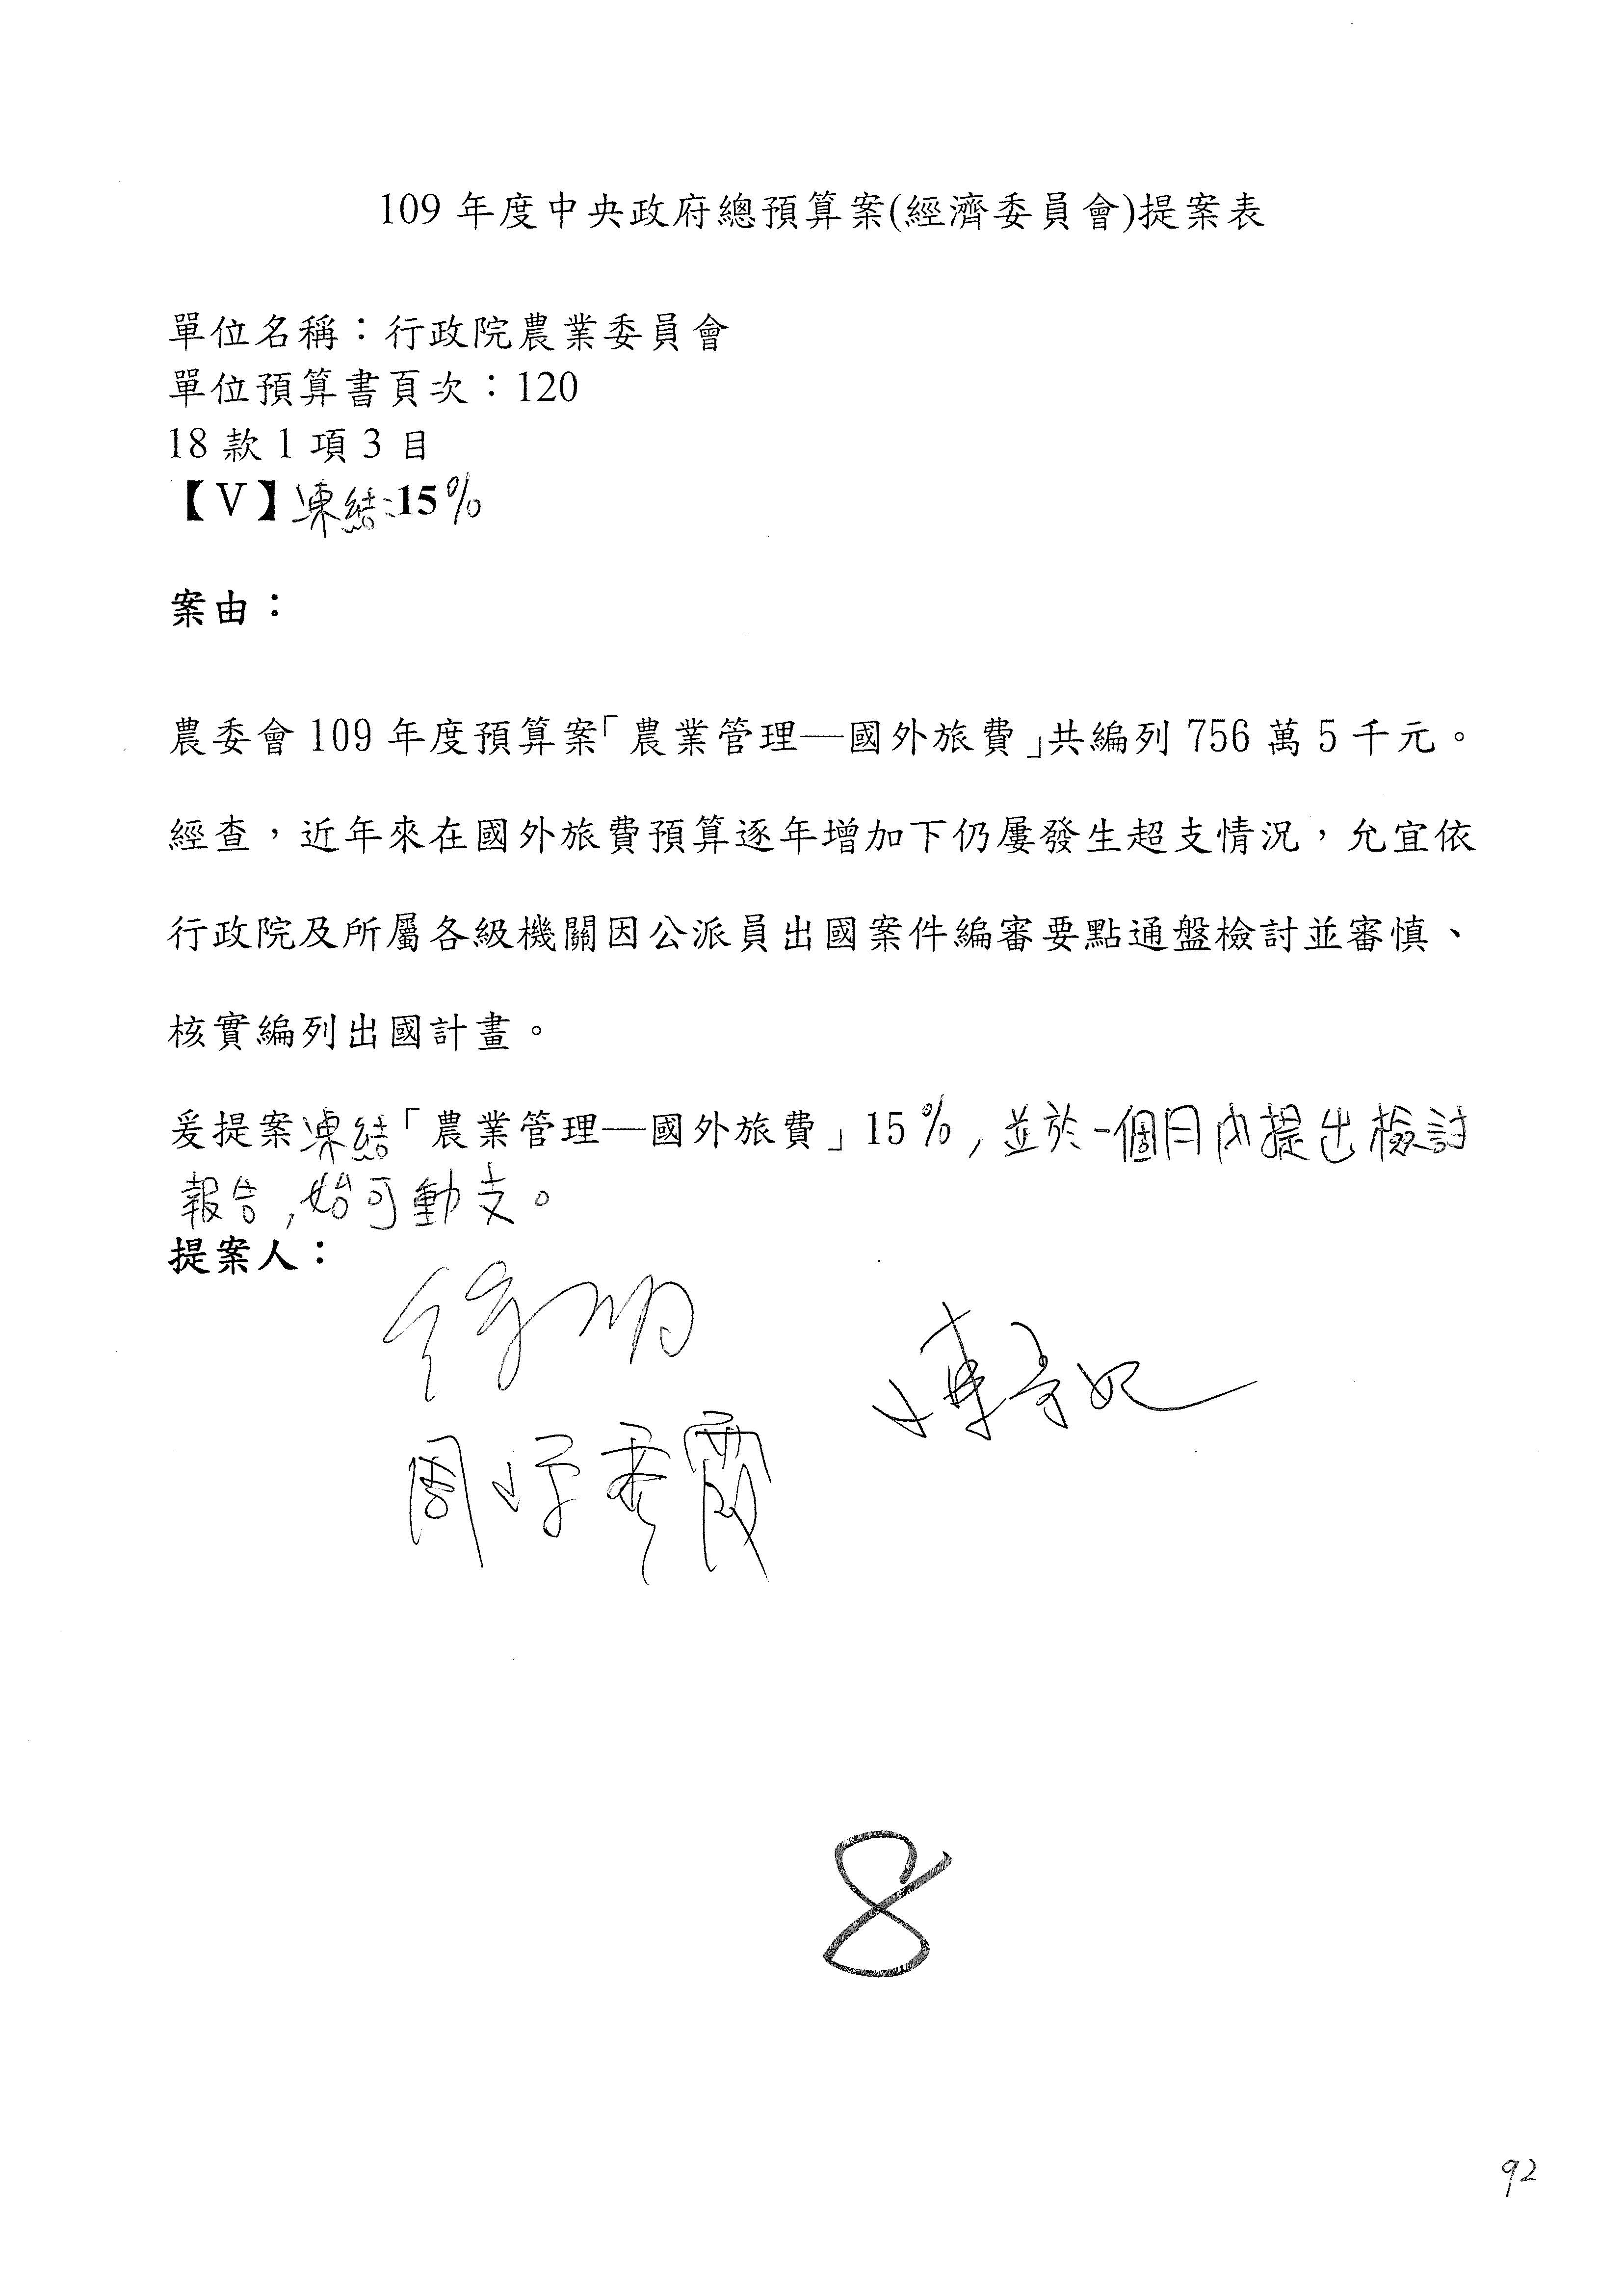 109 年度中央政府總預算案(經濟委員會)提案表
單位名稱：行政院農業委員會
單位預算書頁次：120
18 款 1 項 3 目
【V】凍結:15%
案由：
農委會 109 年度預算案「農業管理—國外旅費」共編列 756 萬 5 千元。
經查，近年來在國外旅費預算逐年增加下仍屢發生超支情況，允宜依
行政院及所屬各級機關因公派員出國案件編審要點通盤檢討並審慎、
核實編列出國計畫。
爰提案凍結「農業管理—國外旅費」15%，並於一個月內提出檢討
報告，始可動支。
提案人：
周陳秀霞
8
92